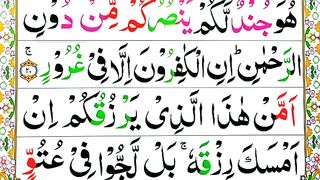 هُوَ جُنْدٌ لَّكُمْ يَنْصُرُكُمْ مِّنْ دُوْنِ
الرَّحْمٰنِ ؕ اِنِ الْكٰفِرُوْنَ اِلَّا فِیْ غُرُوْرٍ ۚ ﴿۲۰﴾
اَمَّنْ هٰذَا الَّذِیْ یَرْزُقُكُمْ اِنْ
اَمْسَكَ رِزْقَهٗ ۚ بَلْ لَّجُّوْا فِیْ عُتُوٍّ